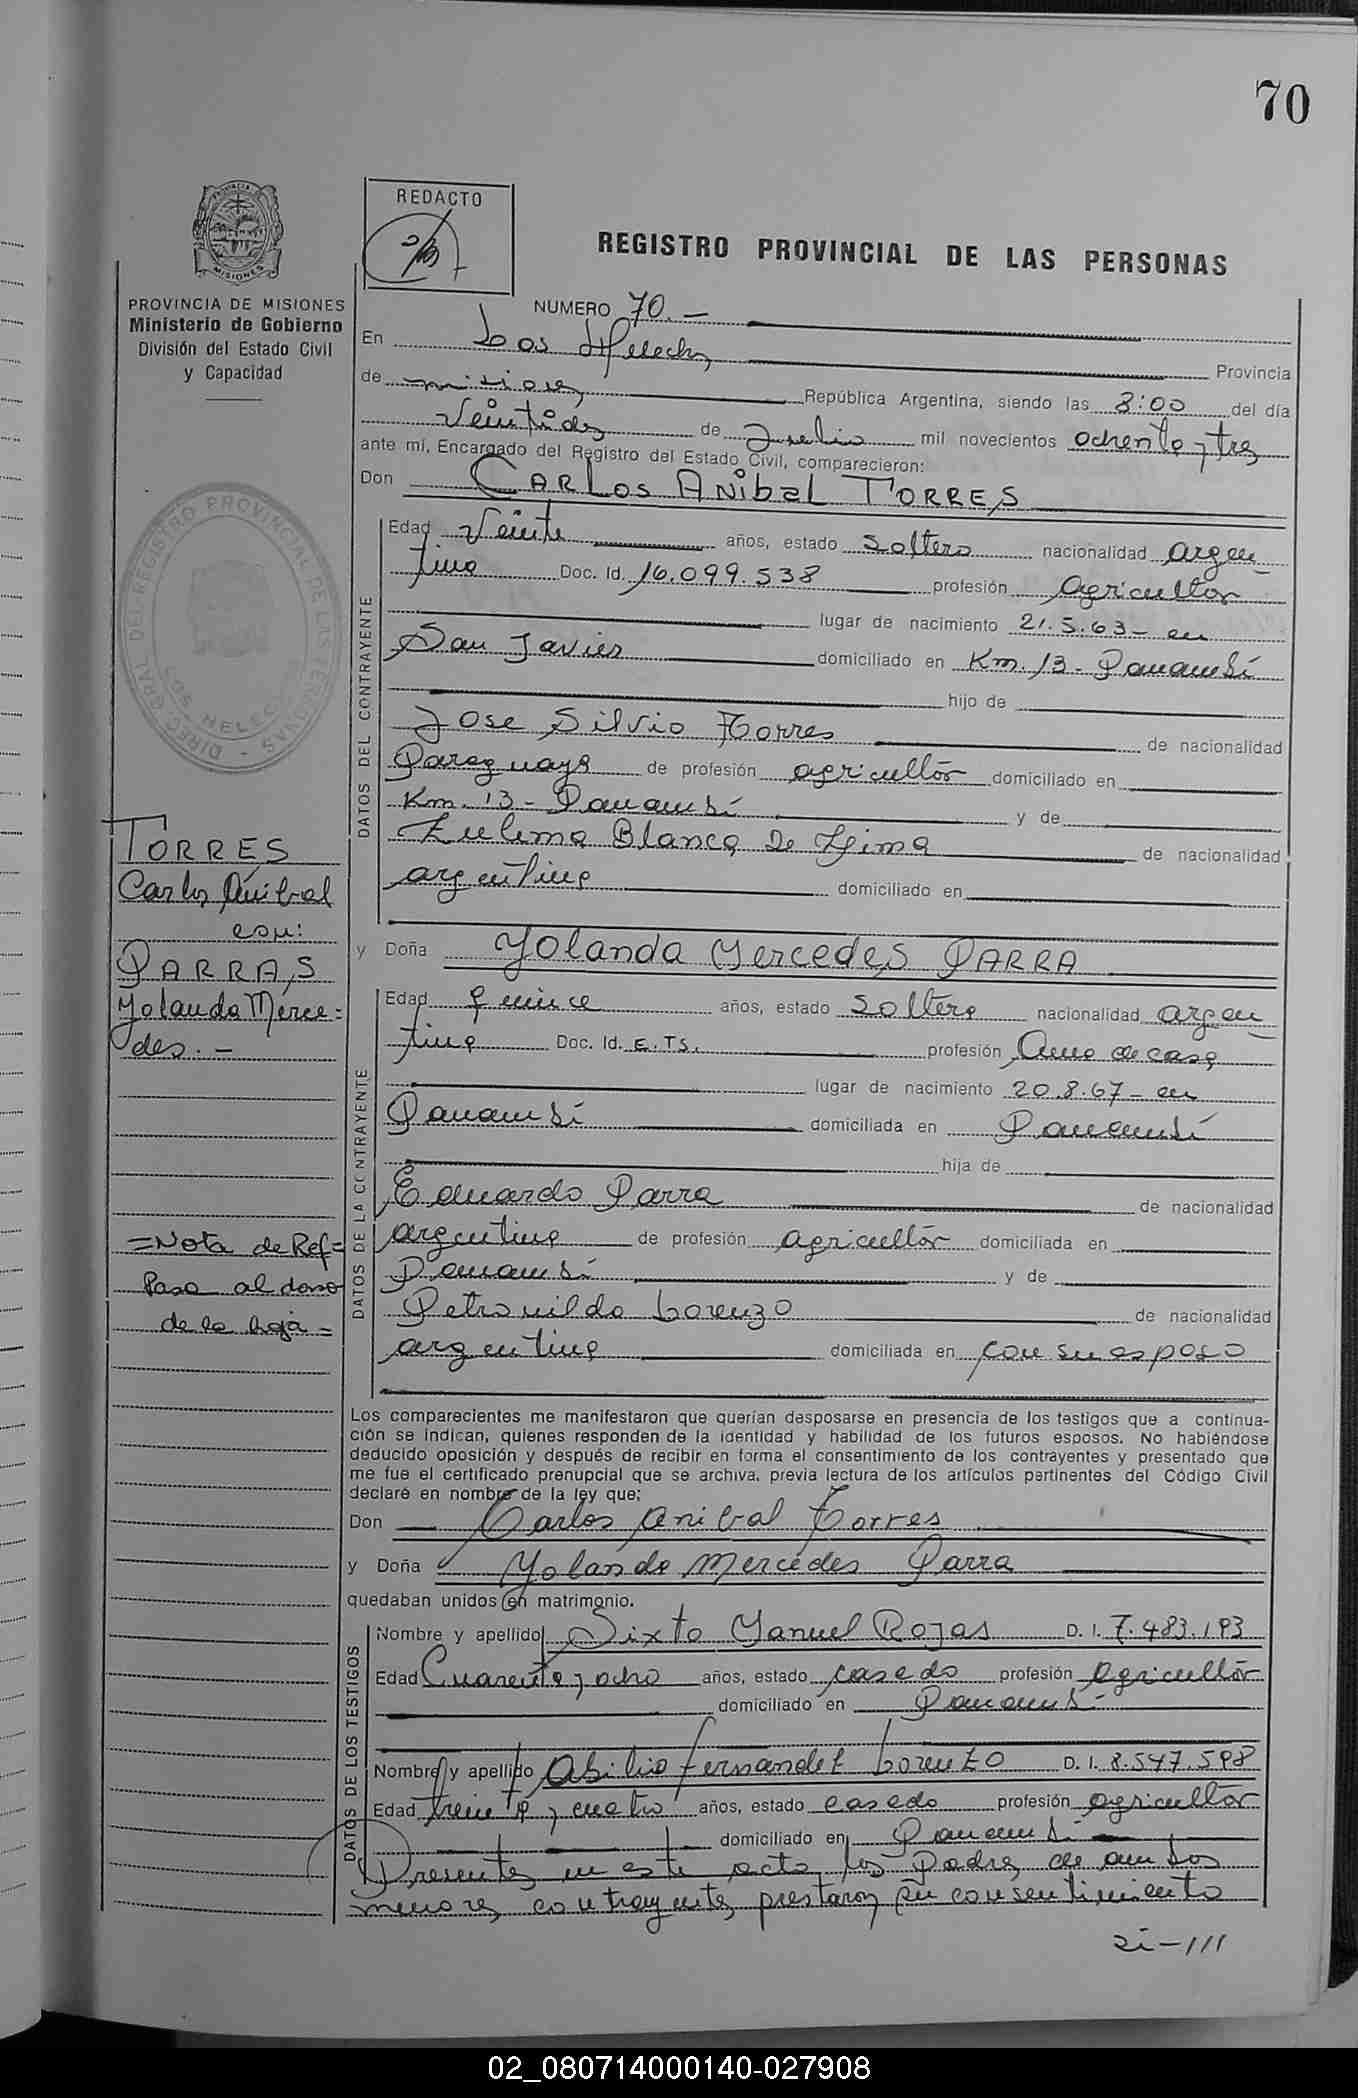 70
REDACTO
REGISTRO PROVINCIAL DE LAS PERSONAS
MISIONES
PROVINCIA DE MISIONES
Ministerio de Gobierno
División del Estado Civil
y Capacidad
NUMERO 70.-
En Los Helechos Provincia
de misiones República Argentina, siendo las 8:00 del día
Veintidos de Julio mil novecientos ochenta y tres
ante mí, Encargado del Registro del Estado Civil, comparecieron:
Don CARLOS ANIBAL TORRES
DATOS DEL CONTRAYENTE
Edad Veinte años, estado soltero nacionalidad argen
tina Doc. Id. 16.099.538 profesión agricultor
lugar de nacimiento 21.5.63- en
San Javier domiciliado en Km. 13- Panambí
hijo de
Jose Silvio Torres de nacionalidad
Paraguaya de profesión agricultor domiciliado en
Km. 13- Panambí y de
Zulema Blanca De Lima de nacionalidad
argentina domiciliado en
y Doña Yolanda Mercedes PARRA
DATOS DE LA CONTRAYENTE
Edad quince años, estado soltera nacionalidad argen
tina Doc. Id. E.TS. profesión Ama de casa
lugar de nacimiento 20.8.67- en
Panambí domiciliada en Panambí
hija de
Eduardo Parra de nacionalidad
argentina de profesión agricultor domiciliada en
Panambí y de
Petronilda Lorenzo de nacionalidad
argentina domiciliada en con su esposo
Los comparecientes me manifestaron que querían desposarse en presencia de los testigos que a continua-
ción se indican, quienes responden de la identidad y habilidad de los futuros esposos. No habiéndose
deducido oposición y después de recibir en forma el consentimiento de los contrayentes y presentado que
me fue el certificado prenupcial que se archiva, previa lectura de los artículos pertinentes del Código Civil
declaré en nombre de la ley que:
Don Carlos Anibal Torres
y Doña Yolanda Mercedes Parra
quedaban unidos en matrimonio.
DATOS DE LOS TESTIGOS
Nombre y apellido Sixto Manuel Rojas D. I. 7.483.193
Edad Cuarenta y ocho años, estado casado profesión agricultor
domiciliado en Panambí
Nombre y apellido Abilio Fernandez Lorenzo D. I. 8.547.598
Edad treinta y cuatro años, estado casado profesión agricultor
domiciliado en Panambí
Presentes en este acto los Padres de ambos
menores contrayentes prestaron su consentimiento
DIREC. GRAL. DEL REGISTRO PROVINCIAL DE LAS PERSONAS
TORRES
Carlos Anibal
con:
PARRAS
Yolanda Merce=
des.-
=Nota de Ref=
Pasa al dorso
de la hoja=
02_080714000140-027908